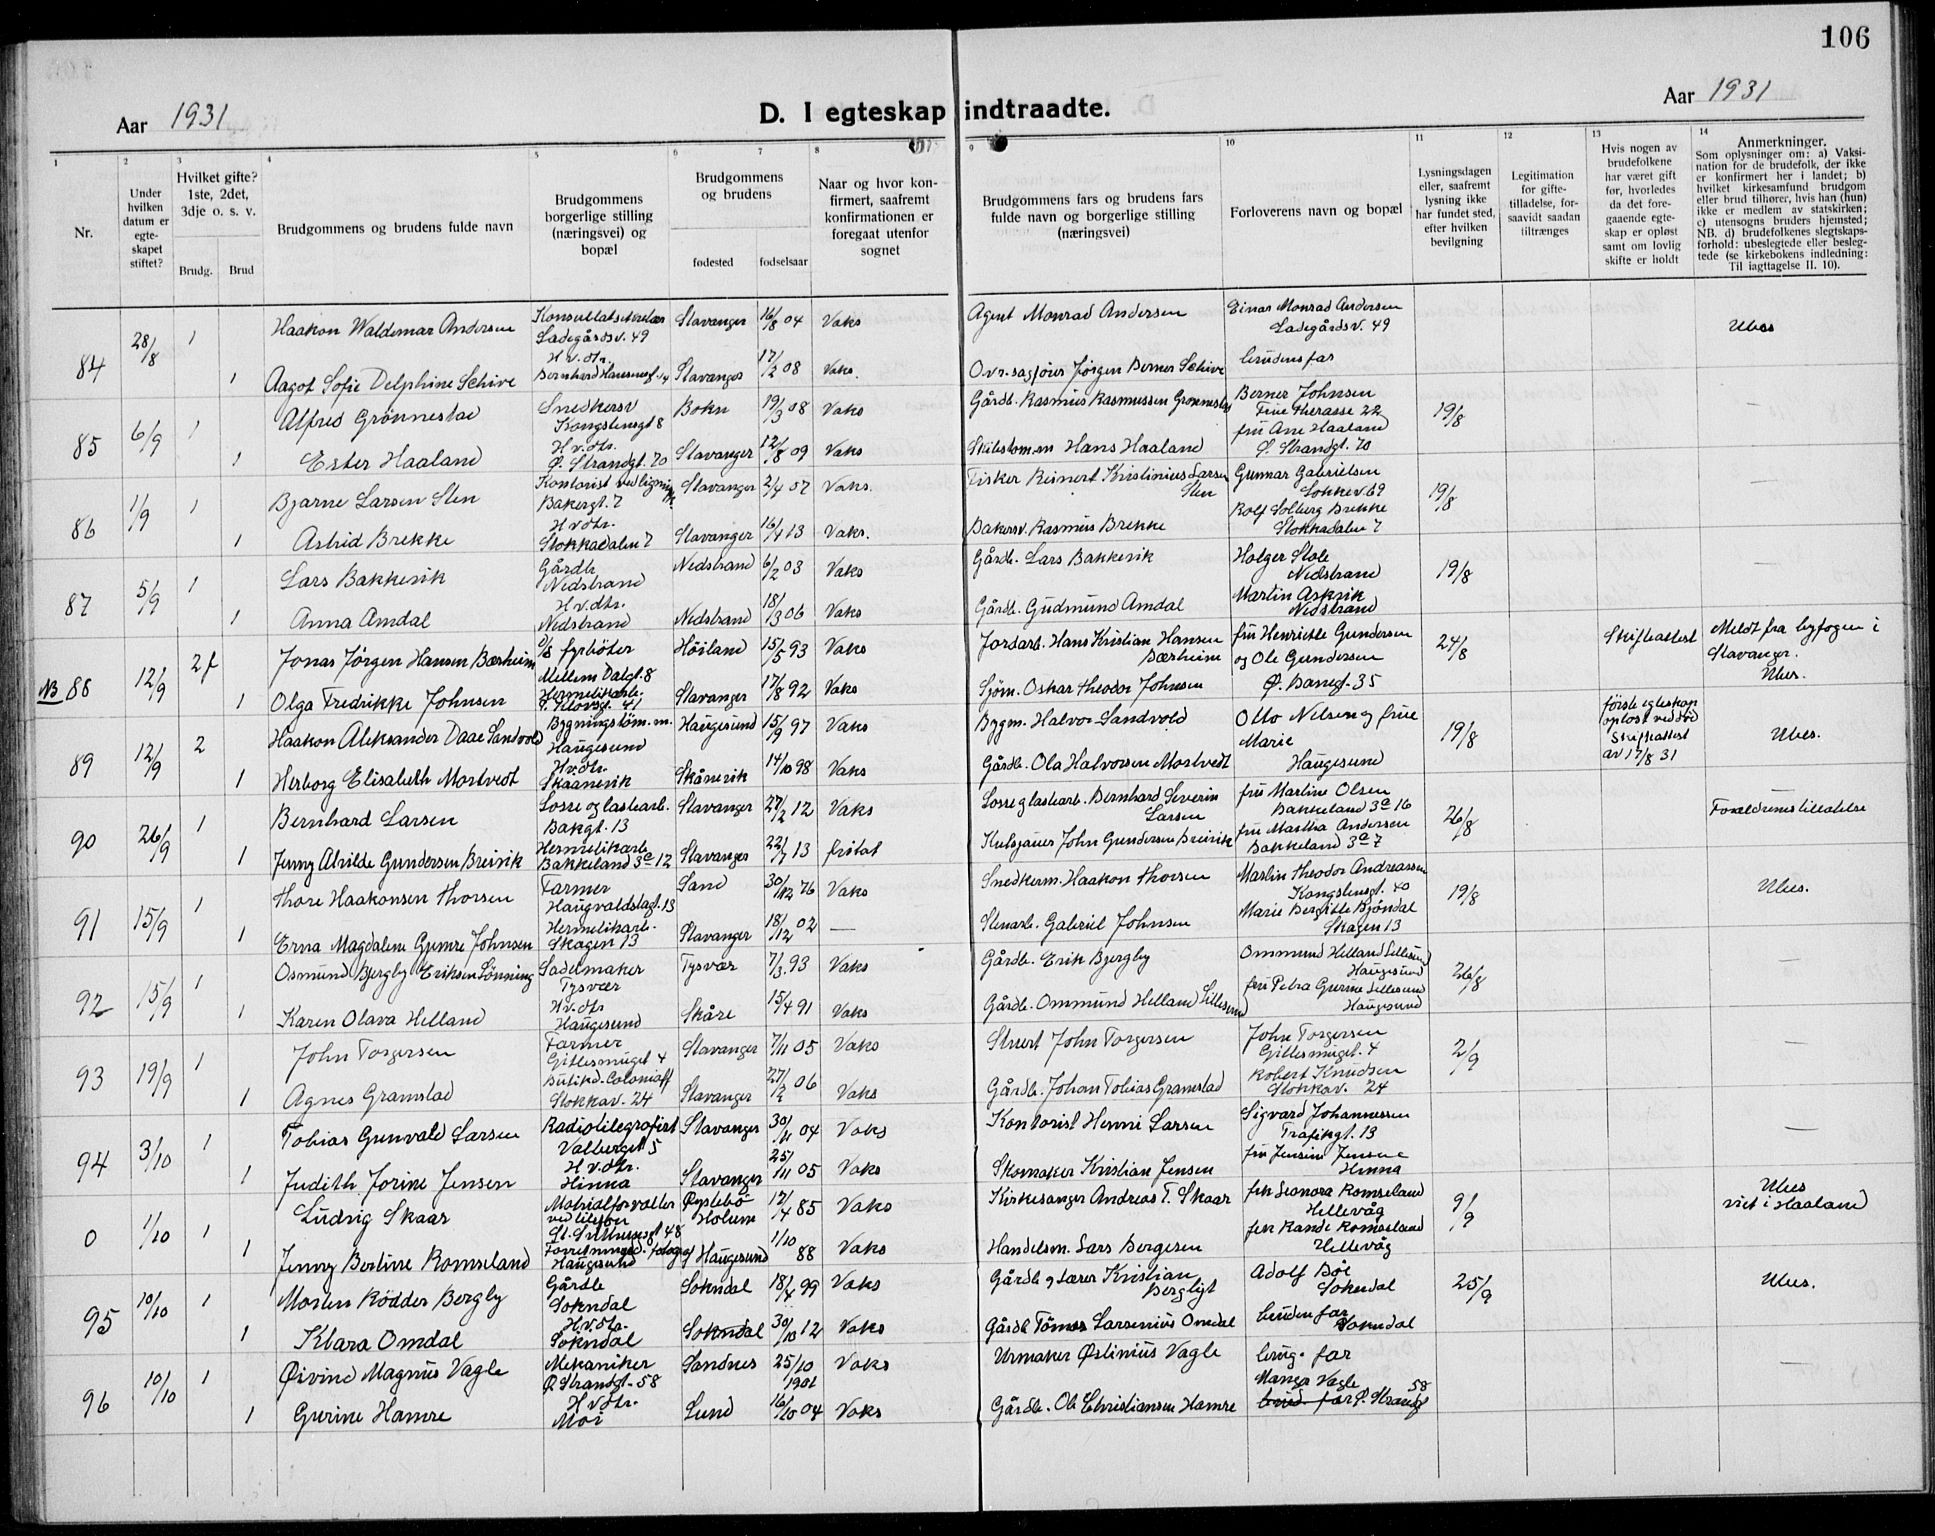 106
Aar 1931
D. I egteskap indtraadte.
Aar 1931
1 2 3 4 5 6 7 8 9 10 11 12 13 14
Nr.
Under hvilken datum er egteskapet stiftet?
Hvilket gifte? 1ste, 2det, 3dje o. s. v.
Brudg. Brud
Brudgommens og brudens fulde navn
Brudgommens borgerlige stilling (næringsvei) og bopæl
Brudgommens og brudens
fødested fødselsaar
Naar og hvor konfirmert, saafremt konfirmationen er foregaat utenfor sognet
Brudgommens fars og brudens fars fulde navn og borgerlige stilling (næringsvei)
Forloverens navn og bopæl
Lysningsdagen eller, saafremt lysning ikke har fundet sted, efter hvilken bevilgning
Legitimation for giftetilladelse, forsaavidt saadan tiltrænges
Hvis nogen av brudefolkene har været gift før, hvorledes da det foregaaende egteskap er opløst samt om lovlig skifte er holdt
Anmerkninger.
Som oplysninger om: a) Vaksination for de brudefolk, der ikke er konfirmert her i landet; b) hvilket kirkesamfund brudgom eller brud tilhører, hvis han (hun) ikke er medlem av statskirken; c) utensogns bruders hjemsted; NB. d) brudefolkenes slegtskapsforhold: ubeslegtede eller beslegtede (se kirkebokens indledning: Til iagttagelse II. 10).
84 28/8 1 Haakon Waldemar Andersen Ladegårdsv. 49 Stavanger 16/8 04 Vaks Agent Monrad Andersen Einar Monrad Andersen Ladegårdsv. 49 Ubes
1 Aagot Sofie Delphine Schive H.v.dtr. Stavanger 17/2 08 Vaks. O.r.sagfører Jørgen Berner Schive brudens far
85 6/9 1 Alfred Grønnestad Snedkersv Kongstensgt 8 Bokn 19/3 08 Vaks Gårdb. Rasmus Rasmussen Grønnestad Berner Johnsen 19/8 —
1 Ester Haaland H.v.dtr. Ø. Strandgt. 70 Stavanger 12/8 09 Vaks Hans Haaland fru Ane Haaland Ø. Strandgt. 70
86 1/9 1 Bjarne Larsen Sten Kontorist Bakergt. 7 Stavanger 2/4 07 Vaks. Fisker Reinert Kristinius Larsen Sten Gunnar Gabrielsen 19/8 —
1 Astrid Brekke H.v.dtr. Stokkadalen 7 Stavanger 16/4 13 Vaks. Bakersv. Rasmus Brekke Rolf Solberg Brekke Stokkadalen 7
87 5/9 1 Lars Bakkevik Gårdb Nedstrand Nedstrand 6/2 03 Vaks Gårdb. Lars Bakkevik Holger Stole Nedstrand 19/8 —
1 Anna Amdal H.v.dtr. Nedstrand Nedstrand 18/3 06 Vaks Gårdb. Gudmund Amdal Martin Askvik Nedstrand
NB 88 12/9 2 f Jonas Jørgen Hansen Bærheim D/S fyrbøter Mellem Dalgt. 8 Höiland 15/5 93 Vaks Jordarb. Hans Kristian Hansen Bærheim fru Henriette Gundersen og Ole Gundersen Ø. Banegt. 35 24/8 Skifteattest Meldt fra byfogen i Stavanger. Ubes.
1 Olga Fredrikke Johnsen Hermetikarb. 41 Stavanger 17/8 92 Vaks Sjøm. Oskar Theodor Johnsen
89 12/9 2 Haakon Aleksander Daae Sandvold Bygningstøm.m. Haugesund Haugesund 15/9 97 Vaks Bygm. Halvor Sandvold Otto Nilsen og frue Marie Haugesund 19/8 første egteskap opløst ved død Skifteattest av 17/8 31 Ubes.
1 Herborg Elisabeth Mortvedt H.v.dtr. Skaanevik Skånevik 14/10 98 Vaks Gårdb. Ola Halvorsen Mortvedt
90 26/9 1 Bernhard Larsen Losse og lastearb. Bakgt. 13 Stavanger 27/2 12 Vaks Losse og lastearb. Bernhard Severin Larsen fru Martine Olsen Bakkeland 3a 16 26/8 Foreldrenes tillatelse
1 Jenny Alvilde Gundersen Breivik Hermetikarb Bakkeland 3a 12 Stavanger 22/7 13 fritat John Gundersen Breivik fru Martha Andersen Bakkeland 3a 7
91 15/9 1 Thore Haakonsen Thorsen Farmer Haugvaldstgt. 13 Sand 30/12 76 Vaks Snedkerm. Haakon Thorsen Martin Theodor Andreassen Kongstensgt. 40 19/8 Ubes.
1 Erna Magdalene Gumre Johnsen Hermetikarb. Skagen 13 Stavanger 18/12 02 — Stenarb. Gabriel Johnsen Marie Bergitte Bjöndal Skagen 13
92 15/9 1 Osmund Bjergby Eriksen Lönning Sadelmaker Tysvær Tysvær 7/3 93 Vaks Gårdb. Erik Bjergby Ommund Helland Lillesund Haugesund 26/8 —
1 Karen Olava Helland H.v.dtr Haugesund Skåre 15/4 91 Vaks Gårdb. Ommund Helland Lillesund fru Petra Gurine Lillesund Haugesund
93 19/9 1 John Torgersen Farmer Stavanger 7/11 05 Vaks Stuert John Torgersen John Torgersen 2/9 —
1 Agnes Gramstad Stokkav. 24 Stavanger 27/2 06 Vaks Gårdb. Johan Tobias Gramstad Robert Knudsen Stokkav. 24
94 3/10 1 Tobias Gunvald Larsen Radiotelegrafist Valberget 5 Stavanger 30/11 04 Vaks Kontorist Henni Larsen Sigvard Johannessen Trafikgt. 13 —
1 Judith Jorine Jensen H.v.dtr. Hinna Stavanger 25/11 05 Vaks Skomaker Kristian Jensen fru Jensine Jensen Hinna
0 1/10 1 Ludvig Skaar Matrialforvalter Øyslebö Holum 12/4 85 Vaks Kirkesanger Andreas T. Skaar frk Leonora Romseland Hillevåg 9/9 Ubes viet i Haaland
1 Jenny Bertine Romseland Haugesund Haugesund 1/10 88 Vaks Handelsm. Lars Bergesen frk Rande Romseland Hillevåg
95 10/10 1 Morten Rödder Bergby Gårdb Sokndal Sokndal 18/4 99 Vaks Gårdb og Lærer Kristian Adolf Böe Sokndal 25/9 Ubes.
1 Klara Omdal H.v.dtr. Sokndal Sokndal 30/10 12 Vaks Gårdb Tömas Larsenius Omdal brudens far Sokndal
96 10/10 1 Øivind Magnus Vagle Mekaniker Ø. Strandgt. 58 Sandnes 25/10 1901 Vaks Urmaker Østinius Vagle brug. far —
1 Gurine Hamre H.v.dtr. Moi Lund 16/10 04 Vaks Gårdb. Ole Christiansen Hamre Manga Vagle Ø. Strandgt 58